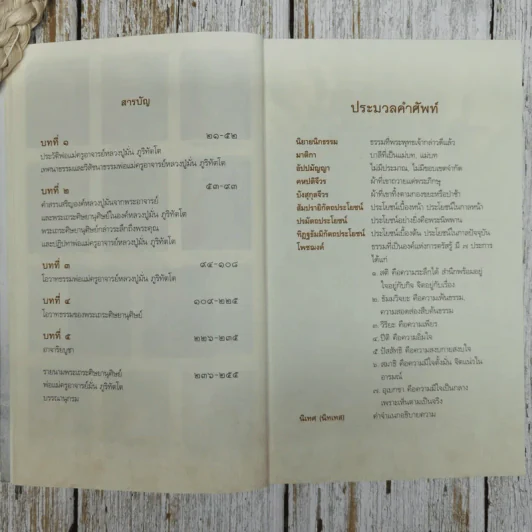 สารบัญ
บทที่ ๑ ๒๑-๕๒
ประวัติพ่อแม่ครูอาจารย์หลวงปู่มั่น ภูริทัตโต
เทศนาธรรมและวิสัชนาธรรมพ่อแม่ครูอาจารย์หลวงปู่มั่น ภูริทัตโต
บทที่ ๒ ๕๓-๙๓
คำสรรเสริญองค์หลวงปู่มั่นจากพระอาจารย์
และพระเถระศิษยานุศิษย์ในองค์หลวงปู่มั่น ภูริทัตโต
พระเถระศิษยานุศิษย์กล่าวระลึกถึงพระคุณ
และปฏิปทาพ่อแม่ครูอาจารย์หลวงปู่มั่น ภูริทัตโต
บทที่ ๓ ๙๔-๑๐๘
โอวาทธรรมพ่อแม่ครูอาจารย์หลวงปู่มั่น ภูริทัตโต
บทที่ ๔ ๑๐๙-๒๒๕
โอวาทธรรมของพระเถระศิษยานุศิษย์
บทที่ ๕ ๒๒๖-๒๓๕
อาจาริยบูชา
รายนามพระเถระศิษยานุศิษย์ ๒๓๖-๒๕๕
พ่อแม่ครูอาจารย์มั่น ภูริทัตโต
บรรณานุกรม
ประมวลคำศัพท์
นิยายนิกธรรม ธรรมที่พระพุทธเจ้ากล่าวดีแล้ว
มาติกา บาลีที่เป็นแม่บท, แม่บท
อัปปมัญญา ไม่มีประมาณ, ไม่มีขอบเขตจำกัด
คหปติจีวร ผ้าที่เขาถวายแด่พระภิกษุ
บังสุกุลจีวร ผ้าที่เขาทิ้งตามกองขยะหรือป่าช้า
สัมปรายิกัตถประโยชน์ ประโยชน์เบื้องหน้า, ประโยชน์ในภาคหน้า
ปรมัตถประโยชน์ ประโยชน์อย่างยิ่งคือพระนิพพาน
ทิฏฐธัมมิกัตถประโยชน์ ประโยชน์เบื้องต้น, ประโยชน์ในภาคปัจจุบัน
โพชฌงค์ ธรรมที่เป็นองค์แห่งการตรัสรู้ มี ๗ ประการ
ได้แก่
๑. สติ คือความระลึกได้ สำนึกพร้อมอยู่
ใจอยู่กับกิจ จิตอยู่กับเรื่อง
๒. ธัมมวิจยะ คือความเฟ้นธรรม,
ความสอดส่องสืบค้นธรรม
๓. วิริยะ คือความเพียร
๔. ปีติ คือความอิ่มใจ
๕. ปัสสัทธิ คือความสงบกายสงบใจ
๖. สมาธิ คือความมีใจตั้งมั่น จิตแน่วใน
อารมณ์
๗. อุเบกขา คือความมีใจเป็นกลาง
เพราะเห็นตามเป็นจริง
นิเทศ (นิทเทส) คำจำแนกอธิบายความ